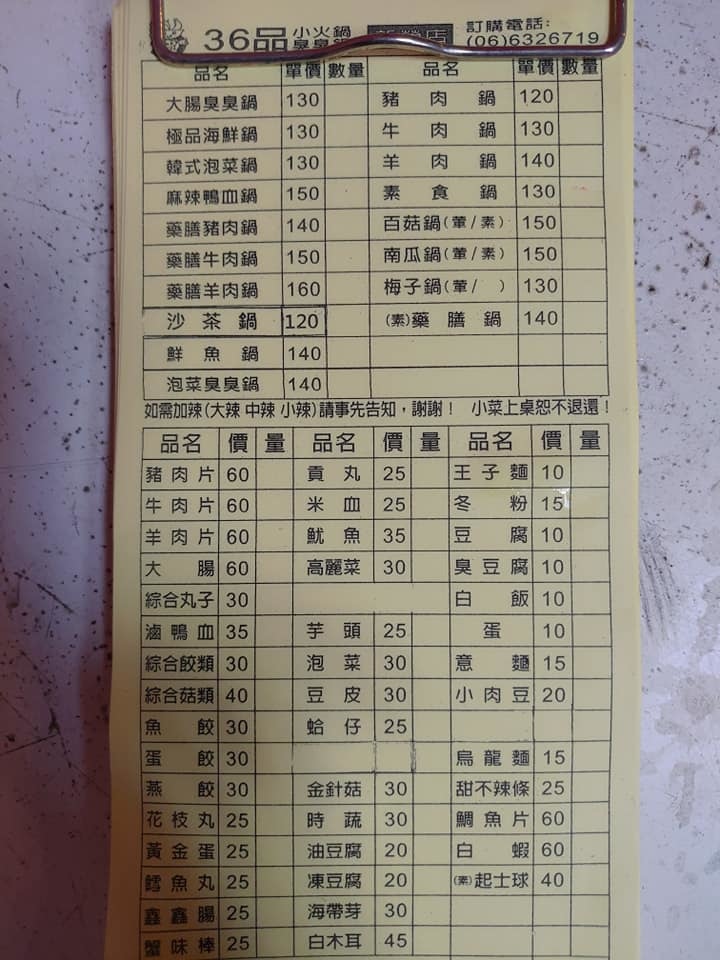 36品 小火鍋 訂購電話:
臭臭鍋 (06)6326719
品名 單價 數量 品名 單價 數量
大腸臭臭鍋 130 豬肉鍋 120
極品海鮮鍋 130 牛肉鍋 130
韓式泡菜鍋 130 羊肉鍋 140
麻辣鴨血鍋 150 素食鍋 130
藥膳豬肉鍋 140 百菇鍋(葷/素) 150
藥膳牛肉鍋 150 南瓜鍋(葷/素) 150
藥膳羊肉鍋 160 梅子鍋(葷/ ) 130
沙茶鍋 120 (素)藥膳鍋 140
鮮魚鍋 140
泡菜臭臭鍋 140
如需加辣(大辣 中辣 小辣)請事先告知,謝謝! 小菜上桌恕不退還!
品名 價 量 品名 價 量 品名 價 量
豬肉片 60 貢丸 25 王子麵 10
牛肉片 60 米血 25 冬粉 15
羊肉片 60 魷魚 35 豆腐 10
大腸 60 高麗菜 30 臭豆腐 10
綜合丸子 30 白飯 10
滷鴨血 35 芋頭 25 蛋 10
綜合餃類 30 泡菜 30 意麵 15
綜合菇類 40 豆皮 30 小肉豆 20
魚餃 30 蛤仔 25
蛋餃 30 烏龍麵 15
燕餃 30 金針菇 30 甜不辣條 25
花枝丸 25 時蔬 30 鯛魚片 60
黃金蛋 25 油豆腐 20 白蝦 60
鱈魚丸 25 凍豆腐 20 (素)起士球 40
鑫鑫腸 25 海帶芽 30
蟹味棒 25 白木耳 45